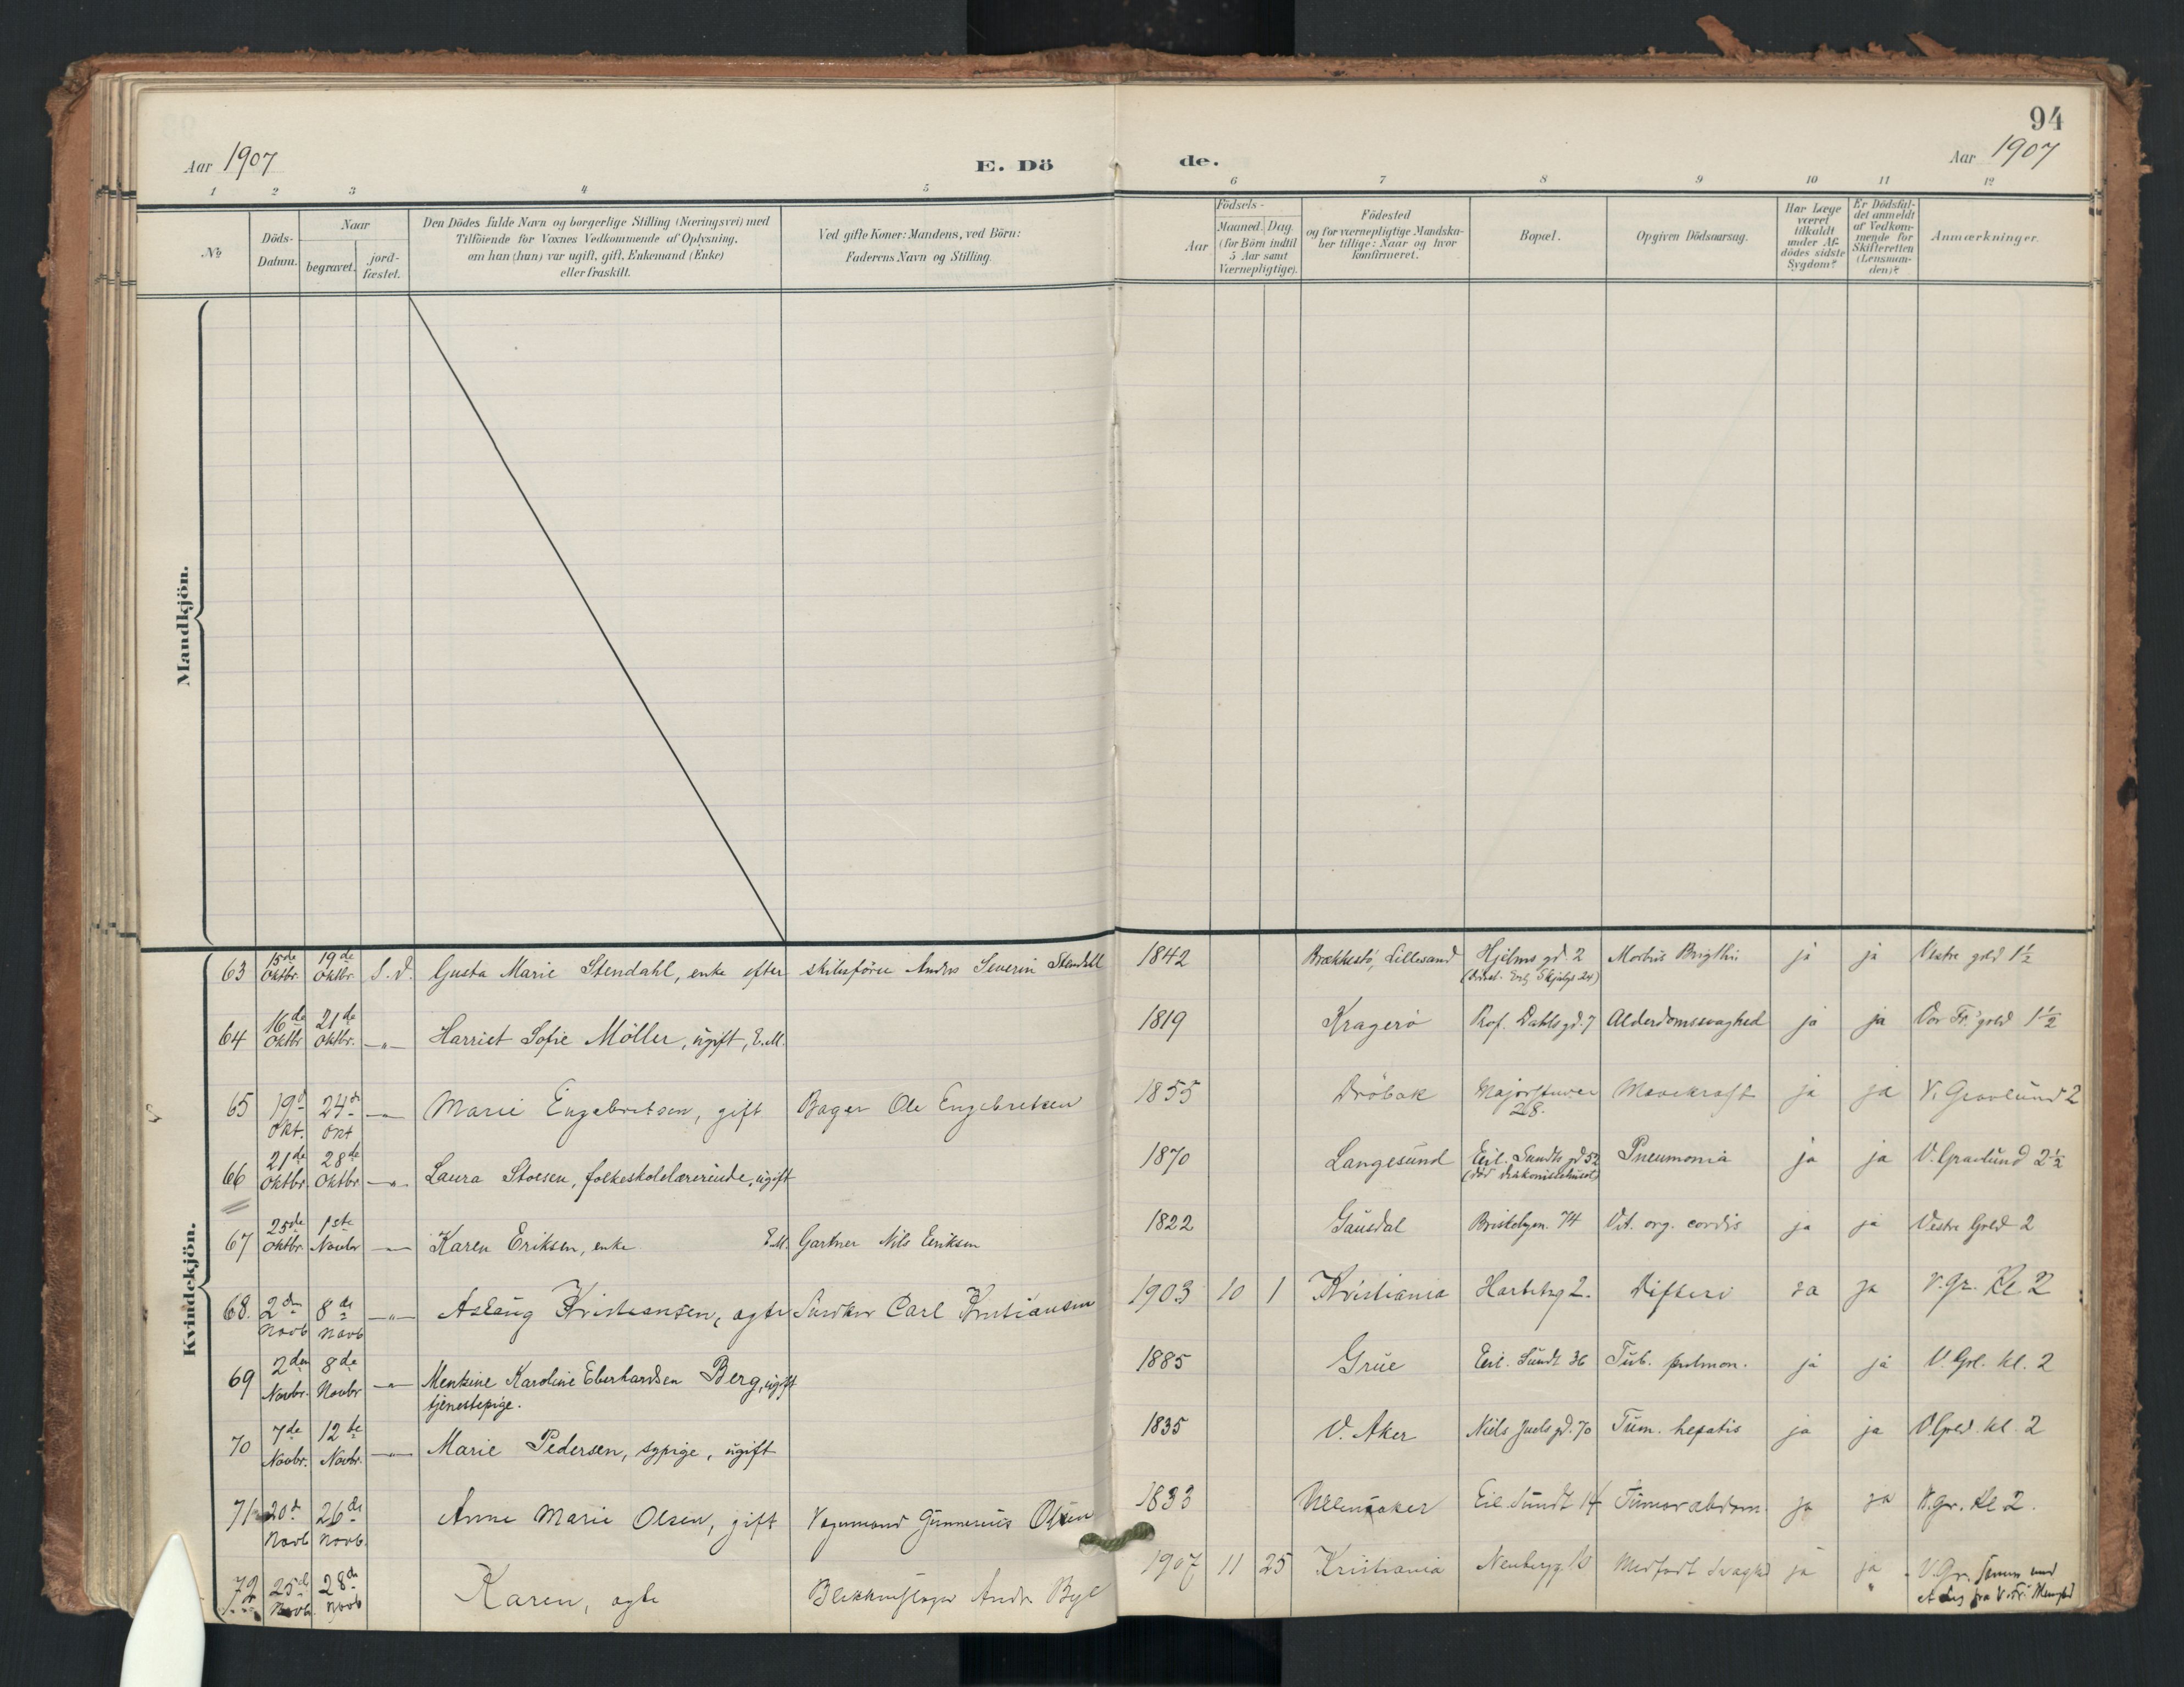 94
Aar 1907
E. Dö
de.
Aar 1907
1 2 3 4 5 6 7 8 9 10 11 12
No
Döds-
Datum.
Naar
begravet.
jord-
fæstet.
Den Dödes fulde Navn og borgerlige Stilling (Næringsvei) med
Tilföiende for Voxnes Vedkommende af Oplysning,
om han (hun) var ugift, gift, Enkemand (Enke)
eller fraskilt.
Ved gifte Koner: Mandens, ved Börn:
Faderens Navn og Stilling.
Födsels-
Aar
Maaned. Dag.
(for Börn indtil
5 Aar samt
Værnepligtige).
Födested
og for værnepligtige Mandska-
ber tillige: Naar og hvor
konfirmeret.
Bopæl.
Opgiven Dödsaarsag.
Har Læge
været
tilkaldt
under Af-
dödes sidste
Sygdom?
Er Dödsfal-
det anmeldt
af Vedkom-
mende for
Skifteretten
(Lensman-
den)?
Anmærkninger.
Mandkjön.
Kvindekjön.
63 15de Oktbr. 19de Oktbr. S.D. Gusta Marie Stendahl, enke efter skibsförer Anders Severin Stendahl 1842 Brækkestö, Lillesand Hjelms gd. 2 Morbus Brigthii ja ja Vestre gvld 1½
64 16de Oktbr 21de Oktbr. —„— Harriet Sofie Möller, ugift, E.M. 1819 Kragerö Prof. Dahls gd. 7 Alderdomssvaghed ja ja Vor Fr. gvld 1½
65 19d Okt. 24d Okt —„— Marie Engebretsen, gift Bager Ole Engebretsen 1855 Dröbak Majorstuvei 28. Mavekræft ja ja V. Gravlund 2
66 21de Oktbr 28de Oktbr —„— Laura Stoesen, folkeskolelærerinde, ugift 1870 Langesund Eil. Sundts gd 52 (död Diakonissehuset) Pneumonia ja ja V. Gravlund 2½
67 25de Oktbr. 1ste Novbr —„— Karen Eriksen, enke E.M. Gartner Nils Eriksen 1822 Gausdal Briskebyen. 74 Vit. org. cordis ja ja Vestre Gvld 2
68. 2den Novb 8de Novb —„— Aslaug Kristiansen, ægte Snedker Carl Kristiansen 1903 10 1 Kristiania 2. Difteri ja ja V. Gr. Kl 2
69 2den Novbr. 8de Novbr —„— Menkine Karoline Eberhardsen Berg, ugift
tjenestepige. 1885 Grue Eil. Sundt 36 Tub. pulmon. ja ja V. Gvl. kl. 2
70 7de Novbr. 12te Novbr. —„— Marie Pedersen, sypige, ugift 1835 V. Aker Niels Juels gd. 70 Tum. hepatis ja ja V. Gvld. kl. 2
71 20d Novb 26de Novb. Anne Marie Olsen, gift Vognmand Gunnerius Olsen 1833 Ullensaker Eil. Sundt 14 Tumor abdom. ja ja V. Gr. Kl 2.
72 25de Novb. 28de Novb Karen, ægte Blikkenslager Andr. 1907 11 25 Kristiania Neubergg Medfødt Svaghd ja ja V. Gr. Samm med
et Lig fra V. Fr.